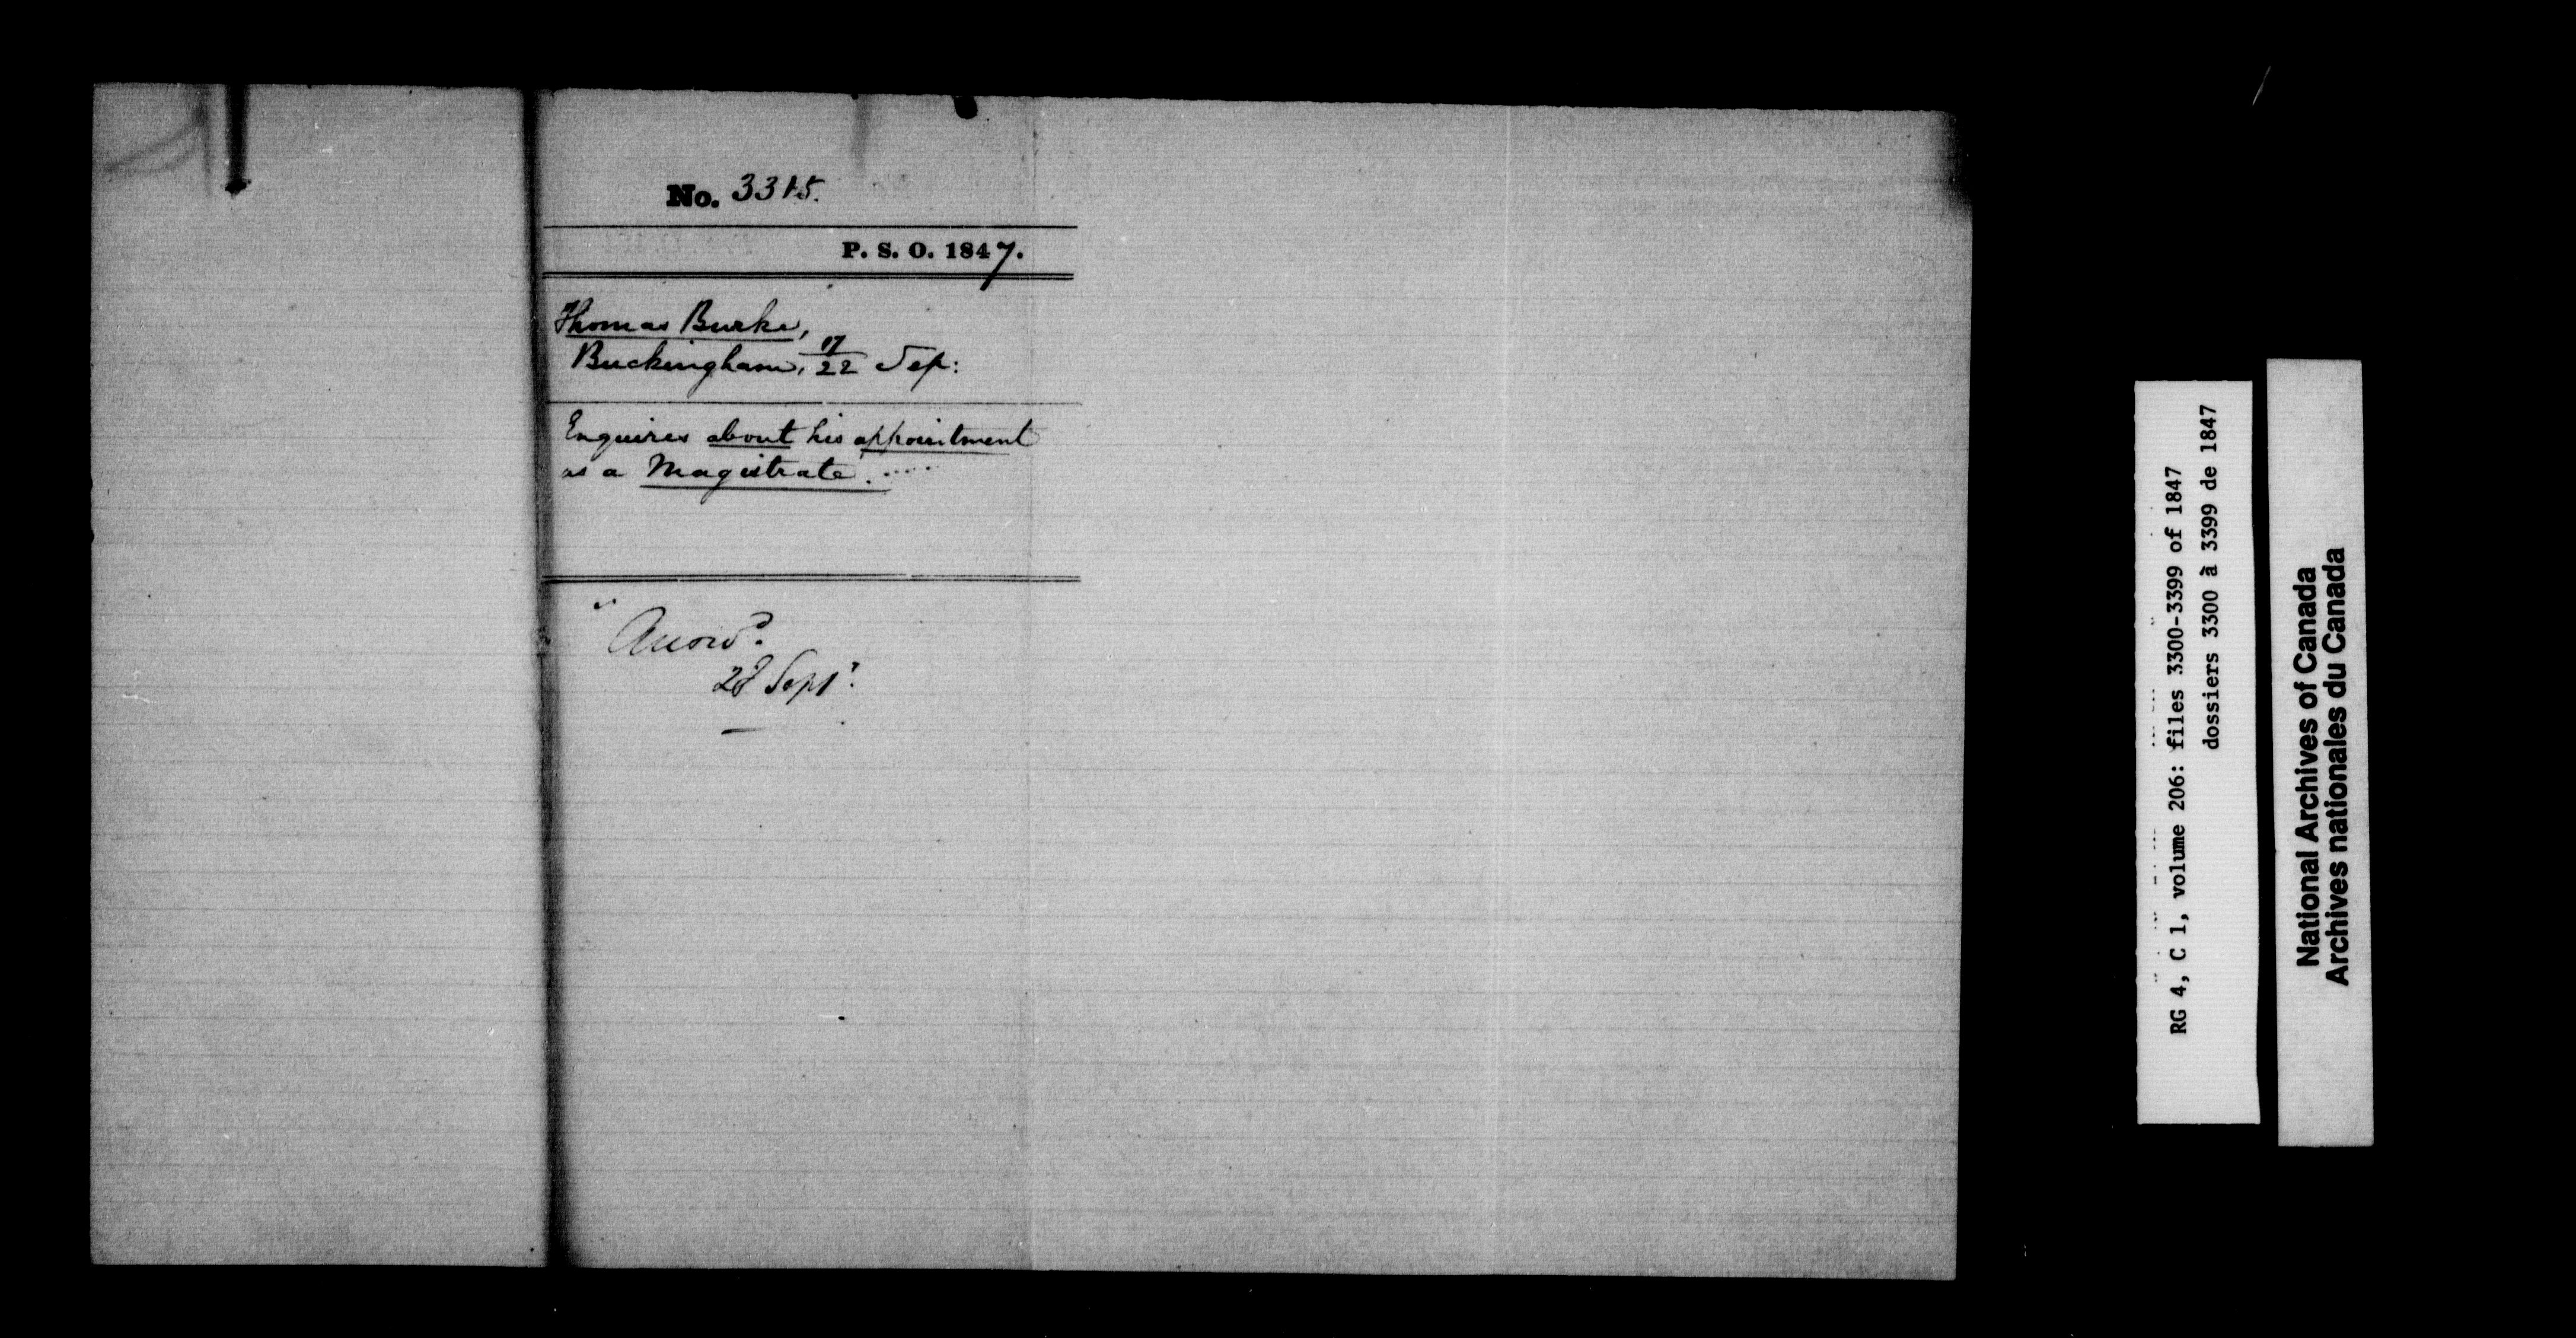 No. 3315.
P. S. O. 1847.
Thomas Burke,
Buckingham, 17/22 Sep:
Enquires about his appointment
as a Magistrate.....
Answd.
28 Sept.
RG 4, C 1, volume 206: files 3300-3399 of 1847
dossiers 3300 à 3399 de 1847
National Archives of Canada
Archives nationales du Canada